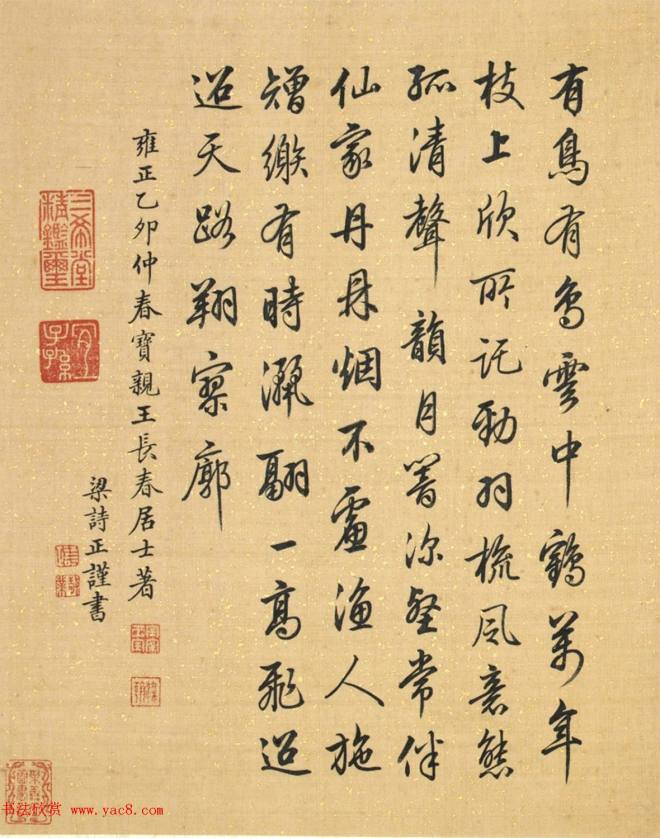 有鳥有鳥雲中鶴萬年
枝上欣所託勁羽梳風意態
孤清聲韻月著深壑常伴
仙家丹鼎烟不慮漁人施
矰繳有時灑翮一高飛迢
迢天路翔寥廓
雍正乙卯仲春寶親王長春居士著
梁詩正謹書
三希堂精鑑璽
宜子孫
书法欣赏 www.yac8.com